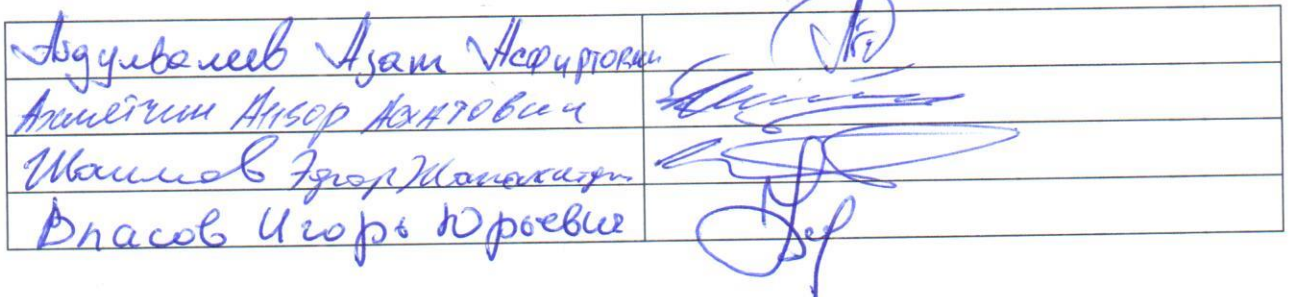 Абдулвалеев Азат Асфиртович
Ахметчин Ансор Ахатович
Шаимов Эдгар
Власов Игорь Юрьевич